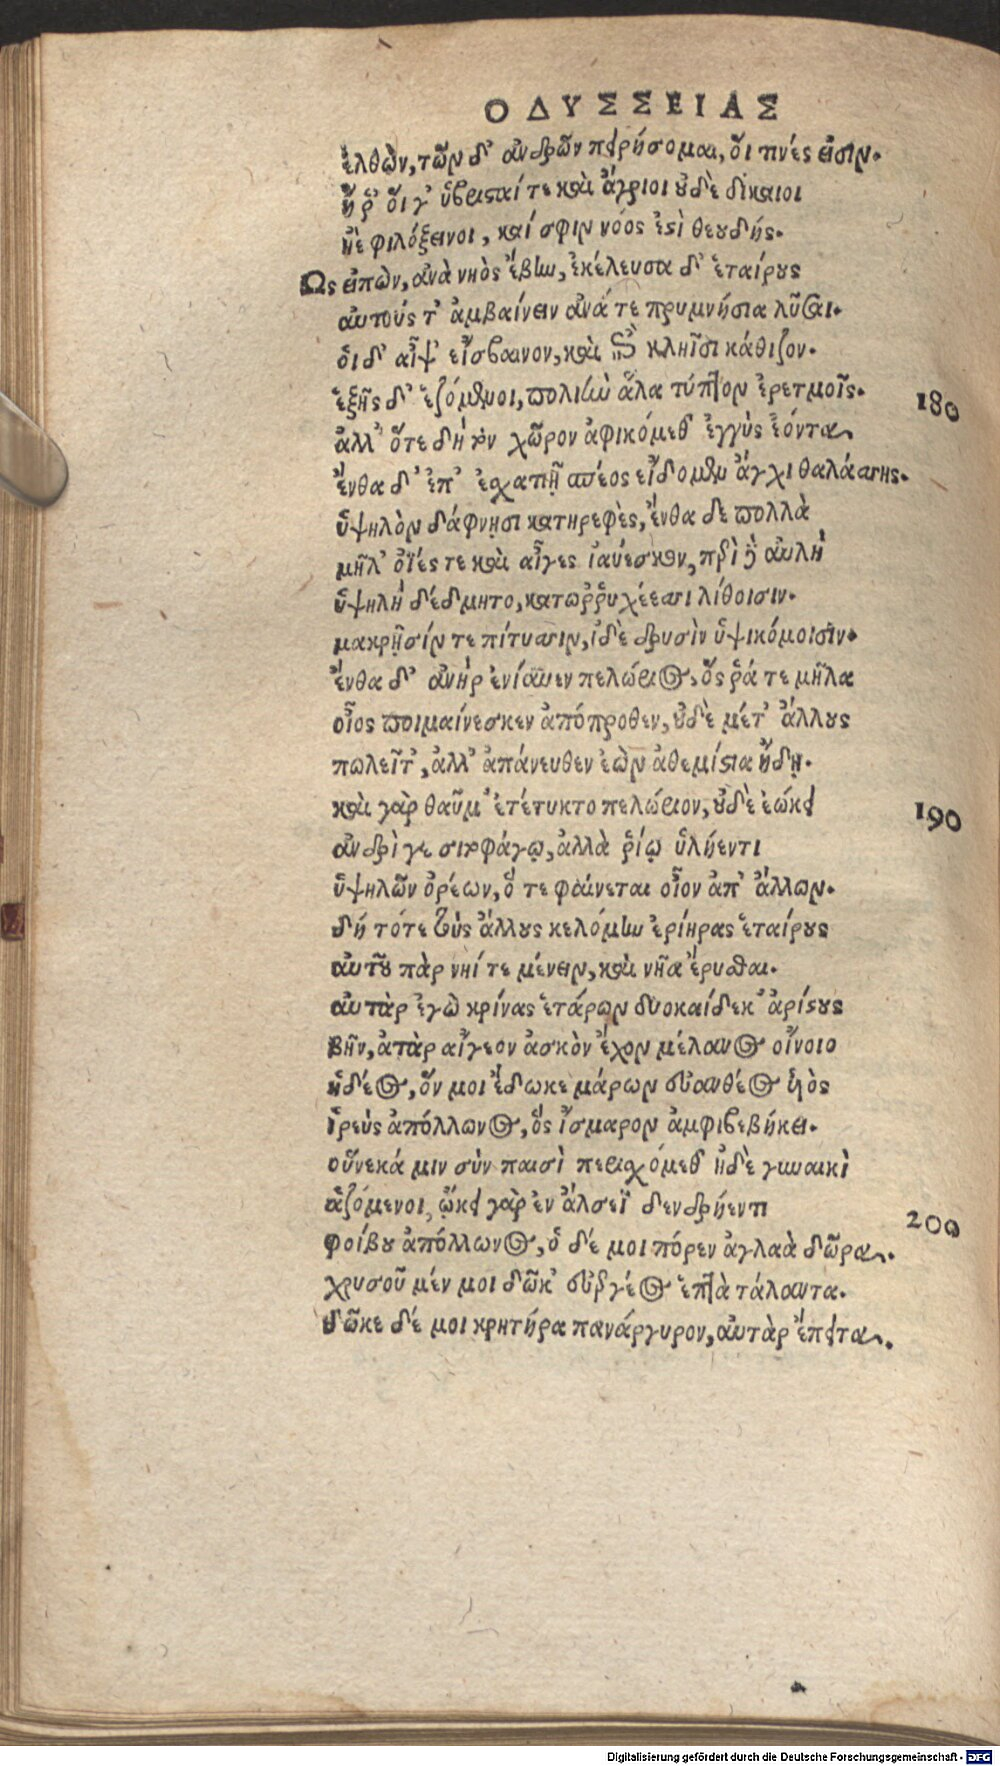 ΟΔΥΣΣΕΙΑΣ
ἐλθὼν, τῶν δ' ἀνδρῶν πειρήσομαι, ὅι τινές εἰσιν.
ἤ ῥ' ὅι γ' ὑβρισταί τε καὶ ἄγριοι οὐδὲ δίκαιοι
ἠὲ φιλόξεινοι, καί σφιν νόος ἐστὶ θεουδής.
Ως εἰπὼν, ἀνὰ νηὸς ἔβην, ἐκέλευσα δ' ἑταίρους
αὐτούς τ' ἀμβαίνειν ἀνά τε πρυμνήσια λῦσαι.
ὁι δ' αἶψ' εἴσβαινον, καὶ ἐπὶ κληῖσι κάθιζον.
ἑξῆς δ' ἑζόμενοι, πολιὴν ἅλα τύπτον ἐρετμοῖς.
180
ἀλλ' ὅτε δὴ τὸν χῶρον ἀφικόμεθ' ἐγγὺς ἐόντα,
ἔνθα δ' ἐπ' ἐσχατιῇ σπέος εἴδομεν ἄγχι θαλάσσης.
ὑψηλὸν δάφνῃσι κατηρεφὲς, ἔνθα δε πολλὰ
μῆλ' ὄϊές τε καὶ αἶγες ἰαύεσκον, περὶ δ' αὐλὴ
ὑψηλὴ δέδμητο, κατωῤῥυχέεσσι λίθοισιν.
μακρῇσίν τε πίτυσσιν, ἰδὲ δρυσὶν ὑψικόμοισιν.
ἔνθα δ' ἀνὴρ ἐνίαυεν πελώριος, ὅς ῥά τε μῆλα
οἶος ποιμαίνεσκεν ἀπόπροθεν, οὐδὲ μέτ' ἄλλους
πωλεῖτ', ἀλλ' ἀπάνευθεν ἐὼν ἀθεμίστια ἤδη.
καὶ γὰρ θαῦμ' ἐτέτυκτο πελώριον, οὐδὲ ἐώκει
190
ἀνδρὶ γε σιτοφάγῳ, ἀλλὰ ῥίῳ ὑλήεντι
ὑψηλῶν ὀρέων, ὅ τε φαίνεται οἶον ἀπ' ἄλλων.
δή τότε τοὺς ἄλλους κελόμην ἐρίηρας ἑταίρους
αὐτοῦ πὰρ νηί τε μένειν, καὶ νῆα ἔρυσθαι.
αὐτὰρ ἐγὼ κρίνας ἑτάρων δυοκαίδεκ' ἀρίστους
βῆν, ἀτὰρ αἴγεον ἀσκὸν ἔχον μέλανος οἴνοιο
ἡδέος, ὅν μοι ἔδωκε μάρων εὐανθέος υἱὸς
ἱρεὺς ἀπόλλωνος, ὅς ἴσμαρον ἀμφιβεβήκει.
οὕνεκά μιν σὺν παισὶ περισχόμεθ' ἠδὲ γυναικὶ
ἁζόμενοι, ᾤκει γὰρ ἐν ἄλσεϊ δενδρήεντι
200
φοίβου ἀπόλλωνος, ὁ δέ μοι πόρεν ἀγλαὰ δῶρα.
χρυσοῦ μέν μοι δῶκ' εὐεργέος ἑπτὰ τάλαντα.
δῶκε δέ μοι κρητῆρα πανάργυρον, αὐτὰρ ἔπειτα.
Digitalisierung gefördert durch die Deutsche Forschungsgemeinschaft - DFG